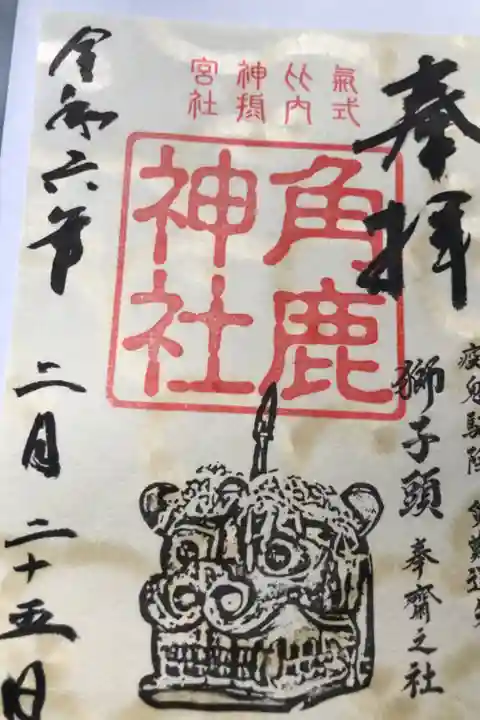 奉拝
疫鬼駆除
獅子頭 奉齋之社
式内
氣比神宮
摂社
角鹿
神社
令和六年 二月 二十五日